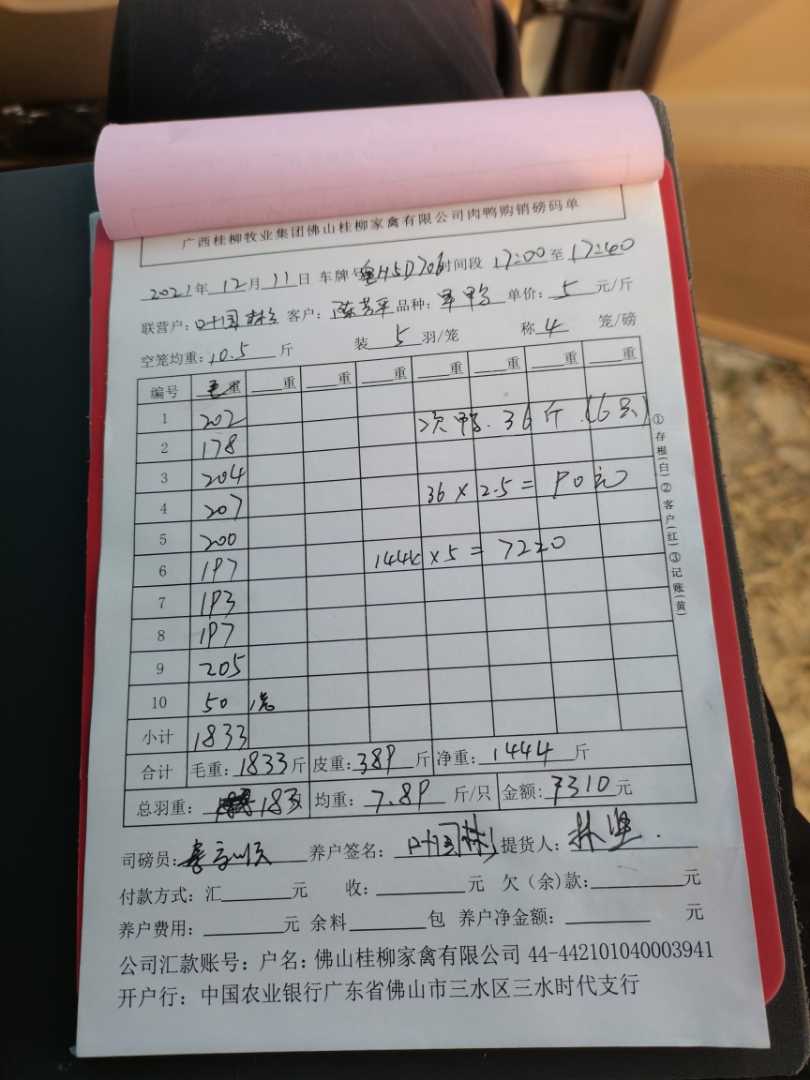 广西桂柳牧业集团佛山桂柳家禽有限公司肉鸭购销磅码单
2021年 12月 11日 车牌号 H5D706 时间段 17:00 至 17:40
联营户: 叶国林 客户: 陈芳平 品种: 单价: 5 元/斤
空笼均重: 10.5 斤 装 5 羽/笼 称 4 笼/磅
编号 毛重 重 重 重 重 重 重 重
1 202 次鸭. 36斤.(6只)
2 178
3 204 36×2.5=90元
4 207
5 200 1444×5=7220
6 197
7 193
8 197
9 205
10 50 1笼
小计 1833
合计 毛重: 1833斤 皮重: 389斤 净重: 1444斤
总羽重: 183 均重: 7.89 斤/只 金额: 7310元
司磅员: 养户签名: 叶国林 提货人: 林坚.
付款方式: 汇 元 收: 元 欠(余)款: 元
养户费用: 元 余料 包 养户净金额: 元
公司汇款账号: 户名: 佛山桂柳家禽有限公司 44-442101040003941
开户行: 中国农业银行广东省佛山市三水区三水时代支行
①存根(白)②客户(红)③记账(黄)